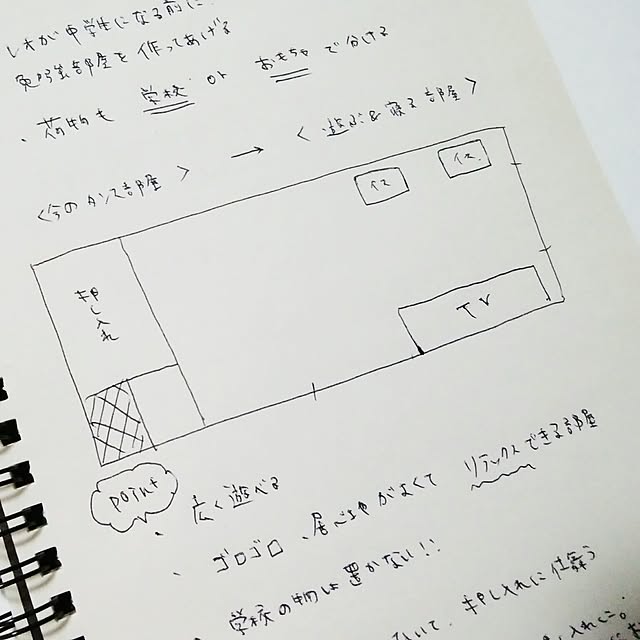 が中学生になる前に
勉強部屋を作ってあげる
、荷物も 学校 or おもちゃ で分ける
<今のタンス部屋> → <遊ぶ&寝る部屋>
イス イス
押し入れ
TV
point
、広く遊べる
、ゴロゴロ、居心地がよくて リラックスできる部屋
、学校の物は置かない!!
押し入れに仕舞う